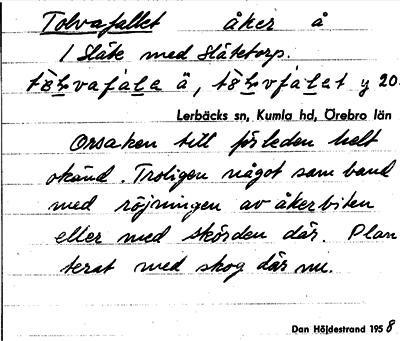 Tolvafallet åker å
1 Släte med Slätetorp.
Lerbäcks sn, Kumla hd, Örebro län
Orsaken till förleden helt
okänd. Troligen något samband
med röjningen av åkerbiten
eller med skörden där. Plan
terat med skog där nu.
Dan Höjdestrand 1958